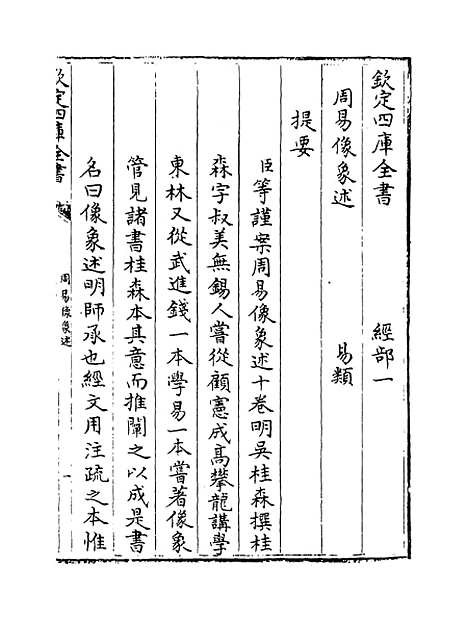 欽定四庫全書 經部一
周易像象述 易類
提要
臣等謹案周易像象述十卷明吳桂森撰桂
森字叔美無錫人嘗從顧憲成高攀龍講學
東林又從武進錢一本學易一本嘗著像象
管見諸書桂森本其意而推闡之以成是書
名曰像象述明師承也經文用注疏之本惟
欽定四庫全書
周易像象述
一